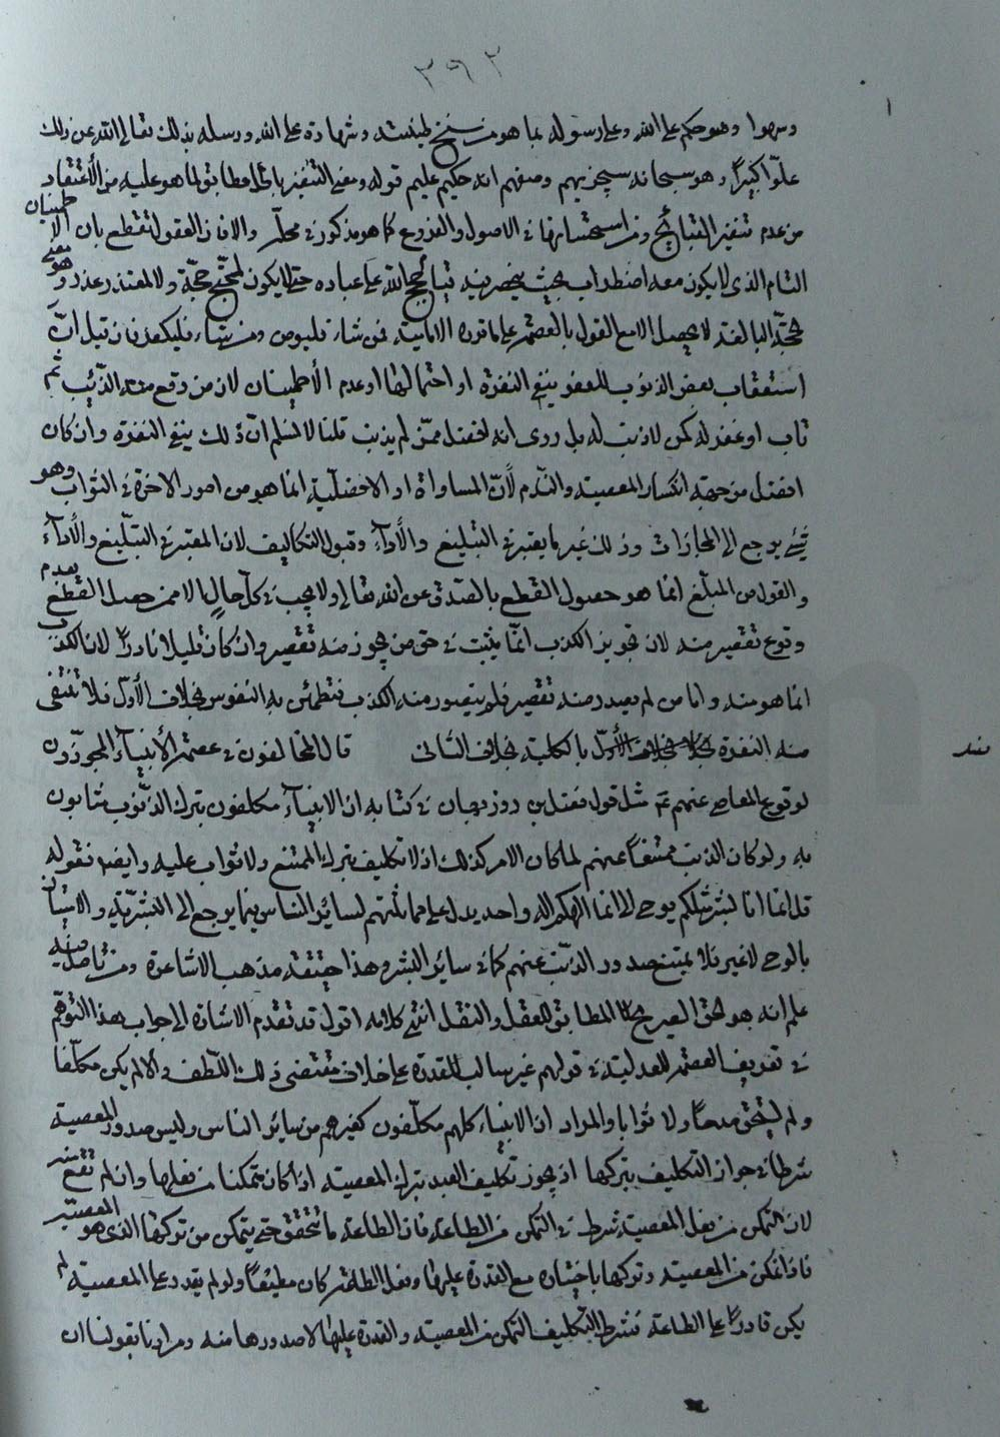 ٣٩٢
١
وسهوا وهو حكم على الله وعلى رسوله بما هو من سنخ طينته وشهادة على الله ورسله بذلك تعالى الله عن ذلك
علوّا كبيرًا وهو سبحانه سيجزيهم وصفهم انه حكيم عليم قوله ومعنى التنفيذ باثم مطابق لما هو عليه من الاعتقاد
من عدم تنفير القبائح ومن استحسانها في الاصول والفروع كما هو مذكور في محلّه والا فان العقول تقطع بان الاطمينان
التام الذي لا يكون معه اضطراب بحيث ينحصر فيه تبالحجج الله على عباده حتى لا يكون لمحتج حجّة ولا لمعتذر عذر وهو معنى
الحجّة البالغة لا يحصل الا مع القول بالعصمة على ما قرره الامامية فمن شاء فليؤمن ومن شاء فليكفر فان قيل انّ
استعقاب بعض الذنوب للعفو ينفي النفرة او احتمالها او عدم الأطمينان لان من وقع منه الذنب ثم
تاب او غفر له كمن لا ذنب له بل روى انه افضل ممّن لم يذنب قلنا لا نسلم انّ ذلك ينفي النفرة وان كان
افضل من جهة انكسار المعصية والندم لأنّ المساواة او الافضلية انما هو من امور الاخرة في الثواب وهو
شيء يرجع الى المجازات وذلك غير ما يعتبر في التبليغ والأداء وقبول التكاليف لان المعتبر في التبليغ والأداء
والقول من المبلّغ انما هو حصول القطع بالصدق عن الله تعالى ولا يجب في كلّ حالٍ الا ممن حصل القطع بعدم
وقوع تقصير منه لان تجويز الكذب انّما يثبت في حق من يجوز منه تقصير وان كان قليلا نادرًا لان الكذب
انما هو منه واما من لم يصدر منه تقصير فلم يتصور منه الكذب فتطمئن به النفوس بخلاف الأول فلا تنتفي
منه النفرة بالكلية بخلاف الثاني قال المخالفون في عصمة الأنبياء المجوزون
منه
لوقوع المعاصي عنهم ثم مثل قول فضل بن روزبهان في كتابه ان الانبياء مكلفون بترك الذنوب مثابون
به ولو كان الذنب ممتنعًا عنهم لما كان الامر كذلك اذ لا تكليف بترك الممتنع ولا ثواب عليه وايضا فقوله
قل انما انا بشر مثلكم يوحى الي انما الهكم اله واحد يدل على مماثلتهم لسائر الناس فيما يرجع الى البشرية والامتياز
بالوحي لا غير فلا يمتنع صدور الذنب عنهم كما في سائر البشر وهذا حقيقة مذهب الاشاعرة ومن تامل فيه
علم انه هو الحق الصريح المطابق للعقل والنقل انتهى كلامه اقول قد تقدم الاشارة الى جواب هذا التوهّم
في تعريف العصمة للعدلية في قولهم غير سالب للقدرة على خلاف مقتضى ذلك اللطف والا لم يكن مكلّفا
ولم يستحق مدحًا ولا ثوابا والمراد ان الانبياء كلهم مكلّفون كغيرهم من سائر الناس وليس صدور المعصية
شرطا في جواز التكليف بتركها اذ يجوز تكليف العبد بترك المعصية اذا كان متمكنا من فعلها وان لم تقع منه
لان التمكن من فعل المعصية شرط في التمكن من الطاعة فان الطاعة ما تتحقق حتى يتمكن من تركها الذي هو المعصية
فاذا تمكن من المعصية وتركها باختياره مع القدرة عليها وفعل الطاعة كان مطيعًا ولو لم يقدر على المعصية لم
يكن قادرًا على الطاعة فشرط التكليف التمكن من المعصية والقدرة عليها لا صدورها منه ومرادنا بقولنا ان